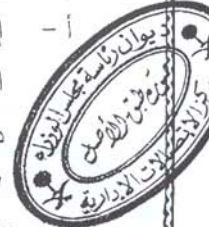 أ -
ديوان رئاسة مجلس الوزراء
صورة طبق الأصل
مركز الاتصالات الإدارية